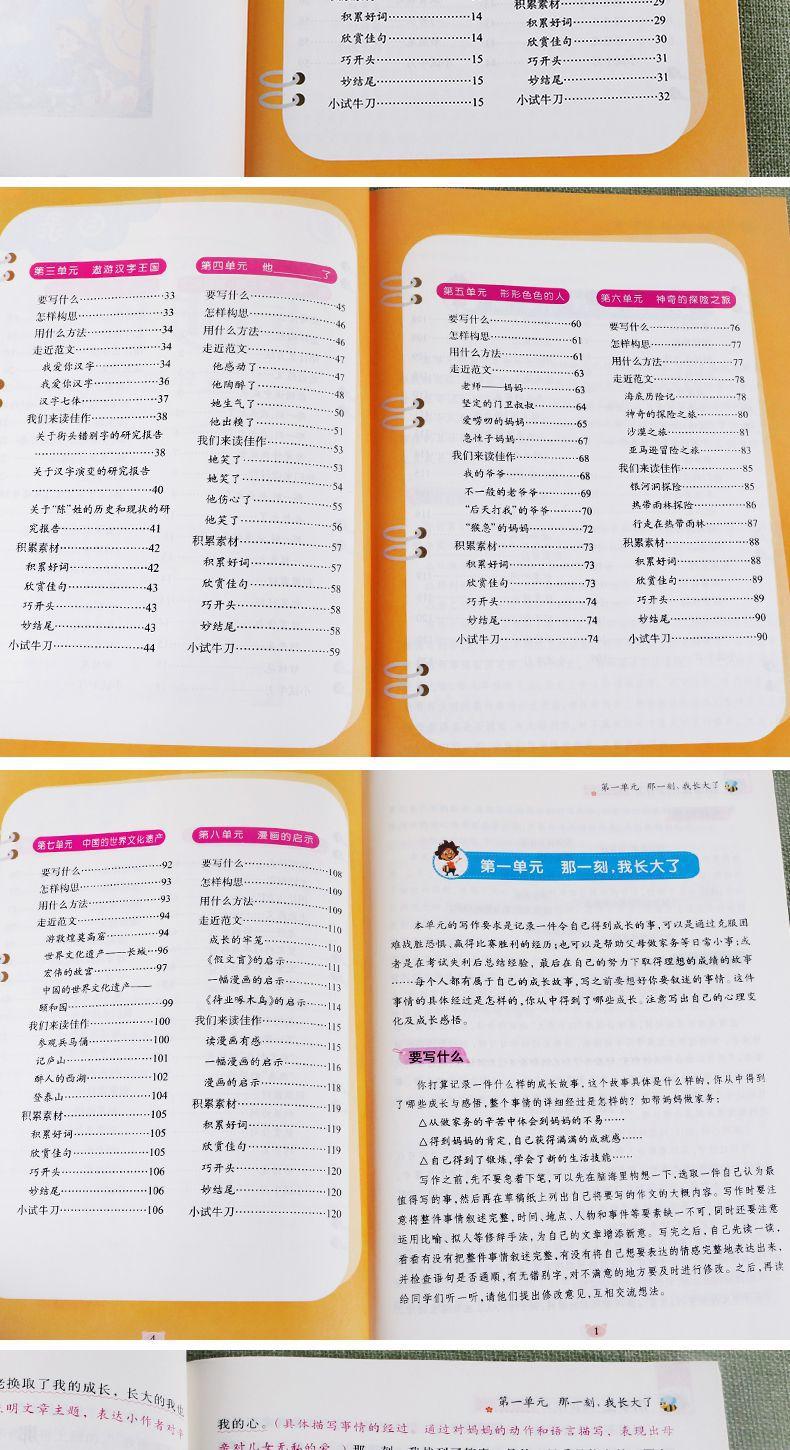 积累好词……………………14
欣赏佳句……………………14
巧开头……………………15
妙结尾……………………15
小试牛刀……………………15
积累素材……………………29
积累好词……………………29
欣赏佳句……………………30
巧开头……………………31
妙结尾……………………31
小试牛刀……………………32
第三单元 遨游汉字王国
要写什么……………………33
怎样构思……………………33
用什么方法……………………34
走近范文……………………34
我爱你汉字……………………34
我爱你汉字……………………36
汉字七体……………………37
我们来读佳作……………………38
关于街头错别字的研究报告
……………………38
关于汉字演变的研究报告
……………………40
关于“陈”姓的历史和现状的研
究报告……………………41
积累素材……………………42
积累好词……………………42
欣赏佳句……………………43
巧开头……………………43
妙结尾……………………43
小试牛刀……………………44
第四单元 他______了
要写什么……………………45
怎样构思……………………46
用什么方法……………………46
走近范文……………………47
他感动了……………………47
他陶醉了……………………48
她生气了……………………50
他出糗了……………………51
我们来读佳作……………………53
她笑了……………………53
她哭了……………………54
他伤心了……………………55
他笑了……………………56
积累素材……………………57
积累好词……………………57
欣赏佳句……………………58
巧开头……………………58
妙结尾……………………58
小试牛刀……………………59
第五单元 形形色色的人
要写什么……………………60
怎样构思……………………61
用什么方法……………………61
走近范文……………………63
老师——妈妈……………………63
坚定的门卫叔叔……………………64
爱唠叨的妈妈……………………65
急性子妈妈……………………67
我们来读佳作……………………68
我的爷爷……………………68
不一般的老爷爷……………………69
“后天打我”的爷爷……………………70
“猴急”的妈妈……………………72
积累素材……………………73
积累好词……………………73
欣赏佳句……………………73
巧开头……………………74
妙结尾……………………74
小试牛刀……………………74
第六单元 神奇的探险之旅
要写什么……………………76
怎样构思……………………77
用什么方法……………………77
走近范文……………………78
海底历险记……………………78
神奇的探险之旅……………………80
沙漠之旅……………………81
亚马逊冒险之旅……………………83
我们来读佳作……………………85
银河洞探险……………………85
热带雨林探险……………………86
行走在热带雨林……………………87
积累素材……………………88
积累好词……………………88
欣赏佳句……………………89
巧开头……………………89
妙结尾……………………90
小试牛刀……………………90
第七单元 中国的世界文化遗产
要写什么……………………92
怎样构思……………………93
用什么方法……………………93
走近范文……………………94
游敦煌莫高窟……………………94
世界文化遗产——长城…96
宏伟的故宫……………………97
中国的世界文化遗产——
颐和园……………………99
我们来读佳作……………………100
参观兵马俑……………………100
记庐山……………………101
醉人的西湖……………………102
登泰山……………………104
积累素材……………………105
积累好词……………………105
欣赏佳句……………………105
巧开头……………………106
妙结尾……………………106
小试牛刀……………………106
第八单元 漫画的启示
要写什么……………………108
怎样构思……………………109
用什么方法……………………109
走近范文……………………110
成长的牢笼……………………110
《假文盲》的启示……………………111
一幅漫画的启示……………………113
《待业啄木鸟》的启示…114
我们来读佳作……………………115
读漫画有感……………………115
一幅漫画的启示……………………116
漫画的启示……………………118
积累素材……………………119
积累好词……………………119
欣赏佳句……………………119
巧开头……………………120
妙结尾……………………120
小试牛刀……………………120
4
第一单元 那一刻，我长大了
第一单元 那一刻，我长大了
本单元的写作要求是记录一件令自己得到成长的事，可以是通过克服困
难战胜恐惧、赢得比赛胜利的经历；也可以是帮助父母做家务等日常小事；或
者是在考试失利后总结经验，最后在自己的努力下取得理想的成绩的故事
……每个人都有属于自己的成长故事，写之前要想好你要叙述的事情。这件
事情的具体经过是怎样的，你从中得到了哪些成长。注意写出自己的心理变
化及成长感悟。
要写什么
你打算记录一件什么样的成长故事，这个故事具体是什么样的，你从中得到
了哪些成长与感悟，整个事情的详细经过是怎样的？如帮妈妈做家务：
△从做家务的辛苦中体会到妈妈的不易……
△得到妈妈的肯定，自己获得满满的成就感……
△自己得到了锻炼，学会了新的生活技能……
写作之前，先不要急着下笔，可以先在脑海里构想一下，选取一件自己认为最
值得写的事，然后再在草稿纸上列出自己将要写的作文的大概内容。写作时要注
意将整件事情叙述完整，时间、地点、人物和事件等要素缺一不可，同时还要注意
运用比喻、拟人等修辞手法，为自己的文章增添新意。写完之后，自己先读一读，
看看有没有把整件事情叙述完整，有没有将自己想要表达的情感完整地表达出来，
并检查语句是否通顺，有无错别字，对不满意的地方要及时进行修改。之后，再读
给同学们听一听，请他们提出修改意见，互相交流想法。
1
老换取了我的成长，长大的我也
明文章主题，表达小作者对
第一单元 那一刻，我长大了
我的心。（具体描写事情的经过。通过对妈妈的动作和语言描写，表现出母
亲对儿女无私的爱。）